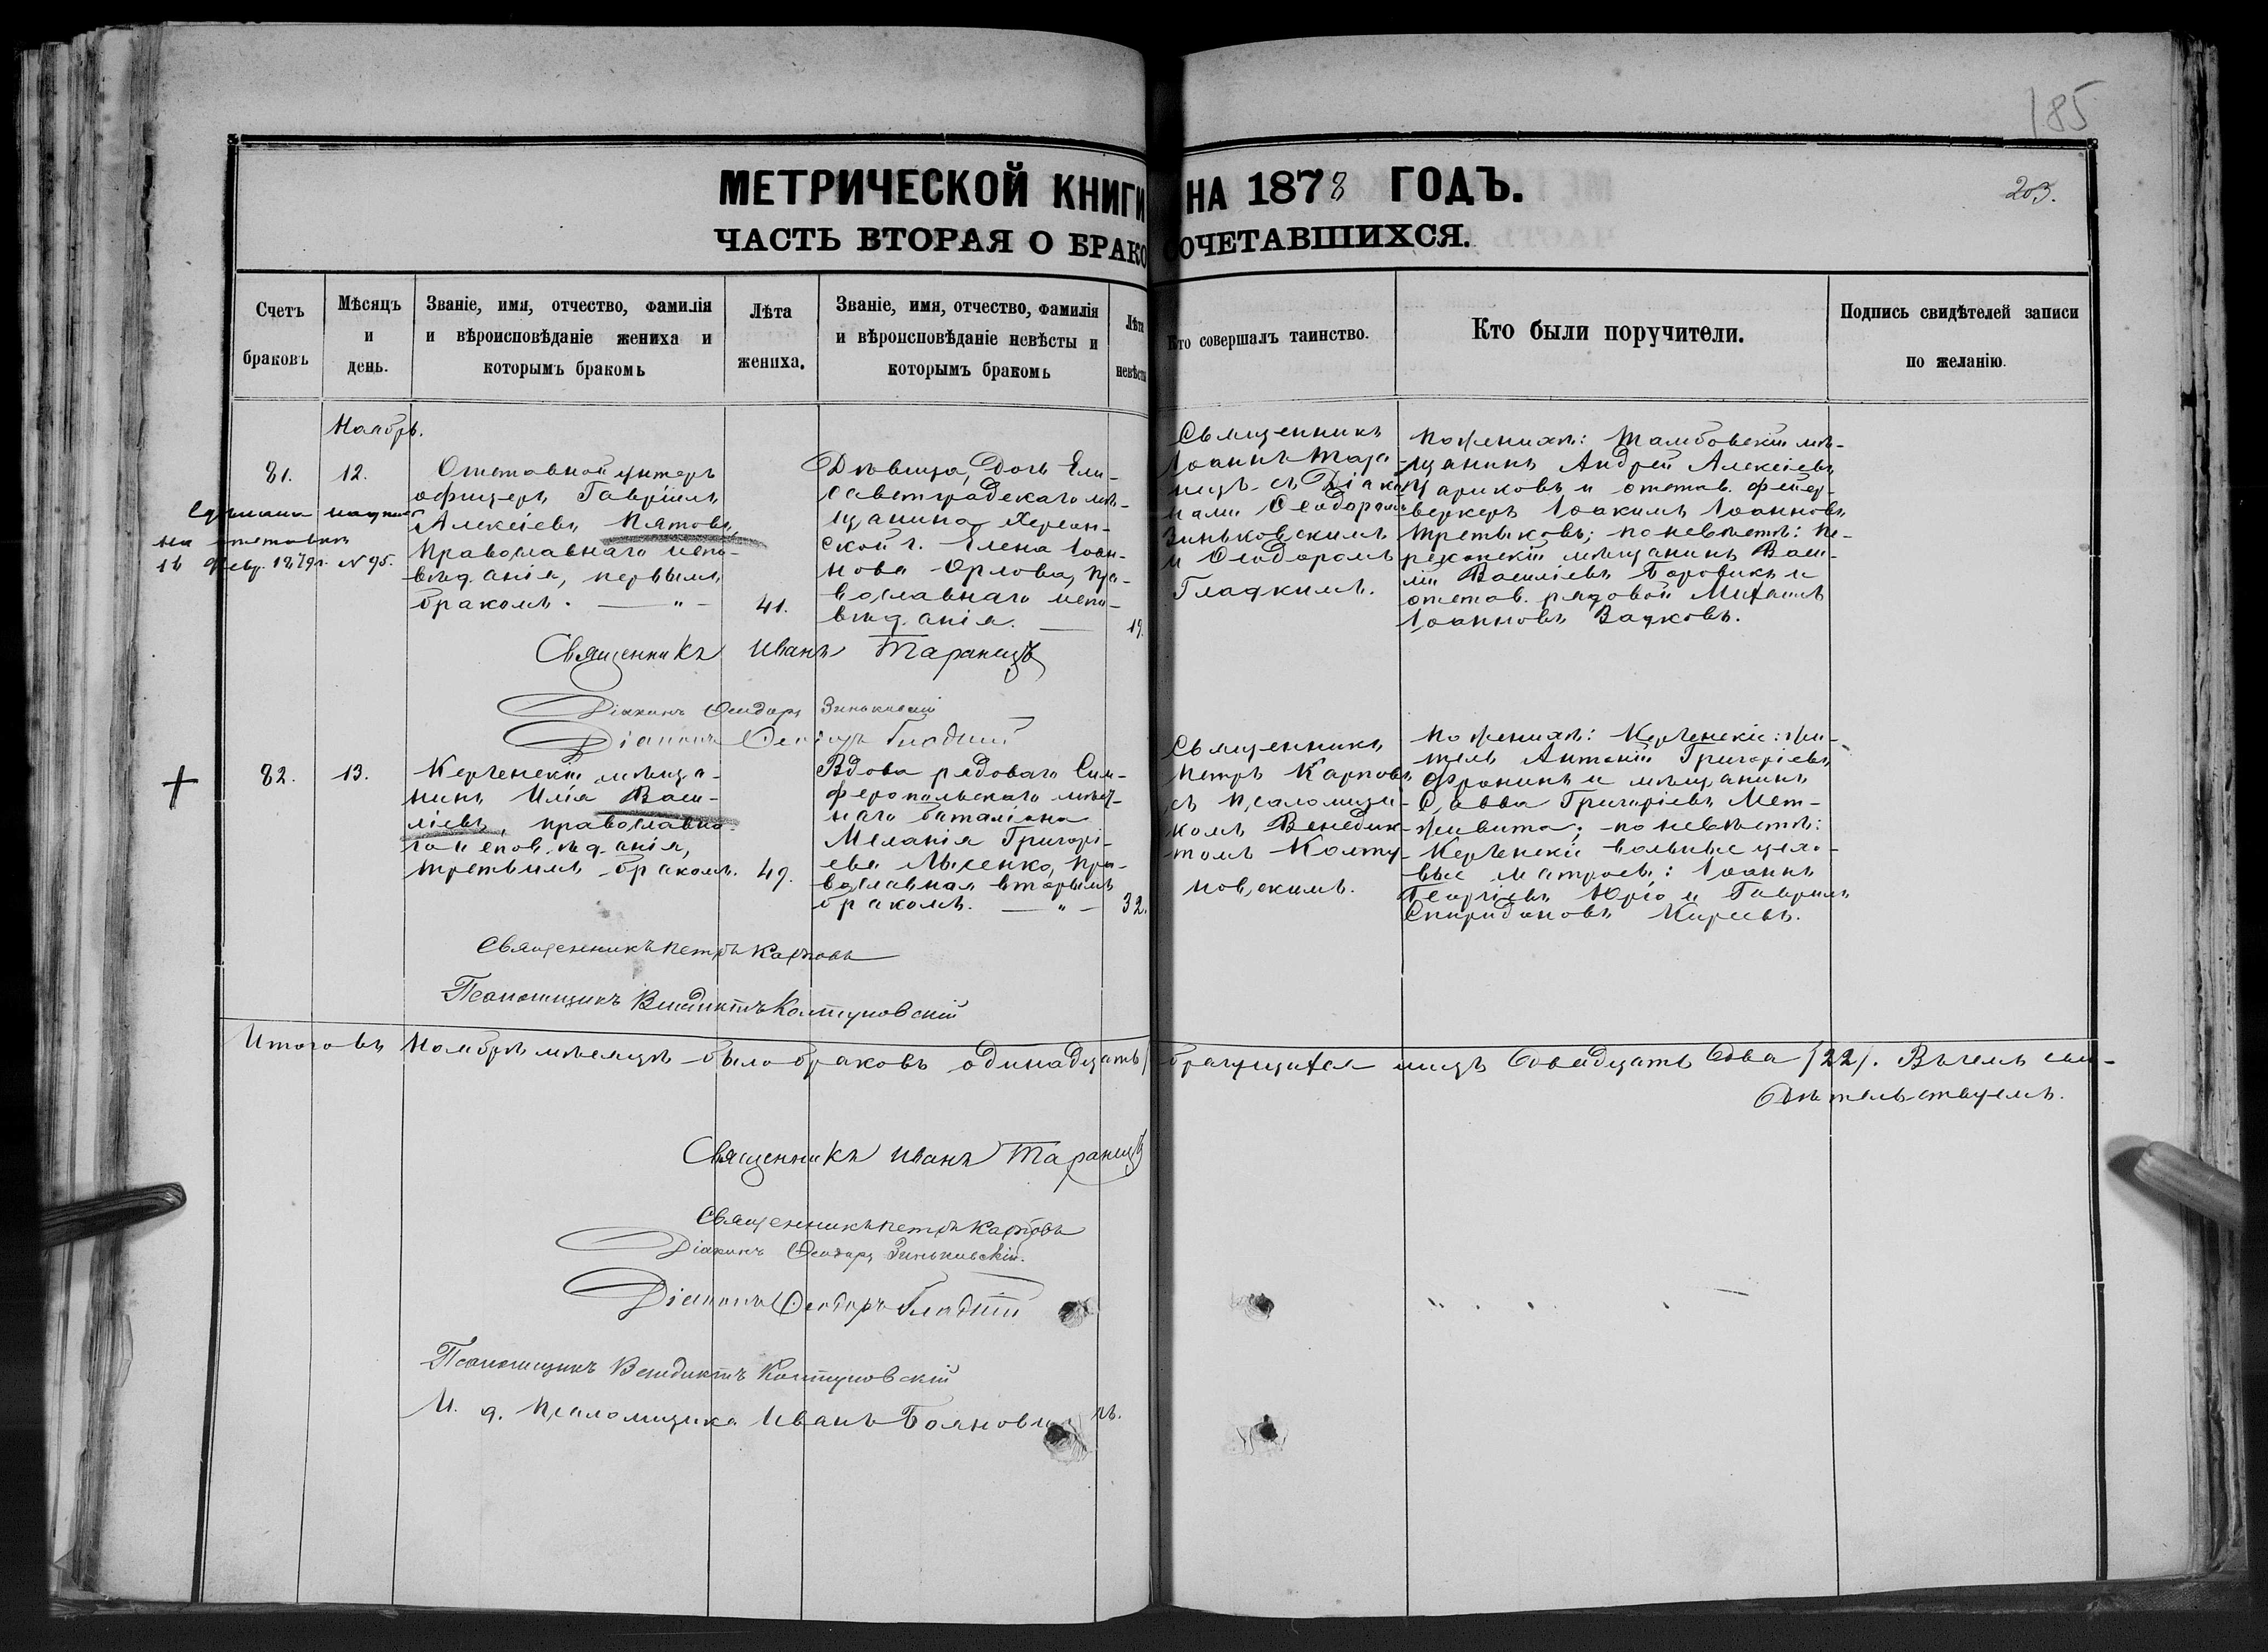 185
МЕТРИЧЕСКОЙ КНИГИ НА 1878 ГОДЪ.
203.
ЧАСТЬ ВТОРАЯ О БРАКОСОЧЕТАВШИХСЯ.
Счетъ
браковъ
Мѣсяцъ
и
день.
Званіе, имя, отчество, фамилія
и вѣроисповѣданіе жениха и
которымъ бракомъ
Лѣта
жениха.
Званіе, имя, отчество, фамилія
и вѣроисповѣданіе невѣсты и
которымъ бракомъ
Лѣта
невѣсты
Кто совершалъ таинство.
Кто были поручители.
Подпись свидѣтелей записи
по желанію.
Ноябрь.
81.
12.
на
16 Февр. 1879г. № 95.
Отставной унтеръ
офицеръ Гавріилъ
Алексіевъ Пятовъ,
православнаго испо-
вѣданія, первымъ
бракомъ. — " —
41.
Дѣвица, дочь Ели-
саветградскаго мѣ-
щанина Херсон-
ской г. Елена Іоан-
нова Орлова, пра-
вославнаго испо-
вѣданія. —
19.
Священникъ
Іоаннъ Тара-
нецъ съ Діако-
нами Ѳеодоромъ
Зиньковскимъ
и Ѳеодоромъ
Гладкимъ.
По женихѣ: Тамбовскій мѣ-
щанинъ Андрей Алексіевъ
Цариковъ и отстав. фейер-
веркеръ Іоакимъ Іоанновъ
Третьяковъ; по невѣстѣ: Пе-
рекопскій мѣщанинъ Васи-
лій Василіевъ Боровикъ и
отстав. рядовой Михаилъ
Іоанновъ Вадковъ.
Священникъ Иванъ Таранецъ
Діаконъ Ѳеодоръ Зиньковскій
Діаконъ Ѳеодоръ Гладкій
82.
13.
Керченскій мѣща-
нинъ Илія Васи-
ліевъ, православна-
го исповѣданія,
третьимъ бракомъ.
49.
Вдова рядоваго Сим-
феропольскаго мѣст-
наго баталіона
Меланія Григорі-
ева Лысенко, пра-
вославная вторымъ
бракомъ. — " —
32.
Священникъ
Петръ Карповъ
съ Псаломщи-
комъ Венедик-
томъ Колту-
новскимъ.
По женихѣ: Керченскіе: жи-
тель Антоній Григоріевъ
Фронинъ и мѣщанинъ
Савва Григоріевъ Мет-
живита; по невѣстѣ:
Керченскіе вольные цехо-
вые матросы: Іоаннъ
Георгіевъ Юріо и Гавріилъ
Спиридоновъ Киріевъ.
Священникъ Петръ Карповъ
Псаломщикъ Венедиктъ Колтуновскій
Итого въ Ноябрѣ мѣсяцѣ было браковъ одинадцать, брачущихся лицъ Двадцать два (22). Въ чемъ сви-
дѣтельствуемъ.
Священникъ Иванъ Таранецъ
Священникъ Петръ Карповъ
Діаконъ Ѳеодоръ Зиньковскій.
Діаконъ Ѳеодоръ Гладкій
Псаломщикъ Венедиктъ Колтуновскій
И. д. Псаломщика Иванъ